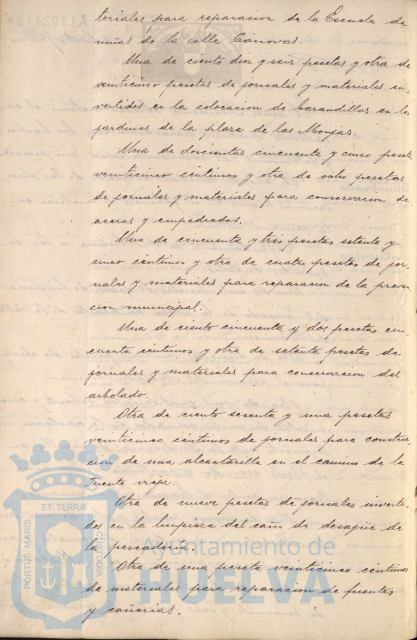 teriales para reparacion de la Escuela de
niñas de la calle Cánovas.
Una de ciento diez y seis pesetas y otra de
veinticinco pesetas de jornales y materiales in-
vertidos en la colocacion de barandillas en los
jardines de la plaza de las Monjas.
Una de doscientas cincuenta y cinco pesetas
veinticinco centimos y otra de ocho pesetas
de jornales y materiales para conservacion de
aceras y empedrados.
Una de cincuenta y tres pesetas setenta y
cinco centimos y otra de cuatro pesetas de jor-
nales y materiales para reparacion de la preven
cion municipal.
Una de ciento cincuenta y dos pesetas cin
cuenta centimos y otra de setenta pesetas de
jornales y materiales para conservacion del
arbolado.
Otra de ciento sesenta y una pesetas
veinticinco centimos de jornales para construc
cion de una alcantarilla en el camino de la
fuente vieja.
Otra de nueve pesetas de jornales inverti-
dos en la limpieza del caño de desagüe de
la pescaderia.
Otra de una peseta veinticinco centimos
de materiales para reparacion de fuentes
y cañerias.
PORTUS MARIS ET TERRÆ CUSTODIA
Ayuntamiento de
HUELVA